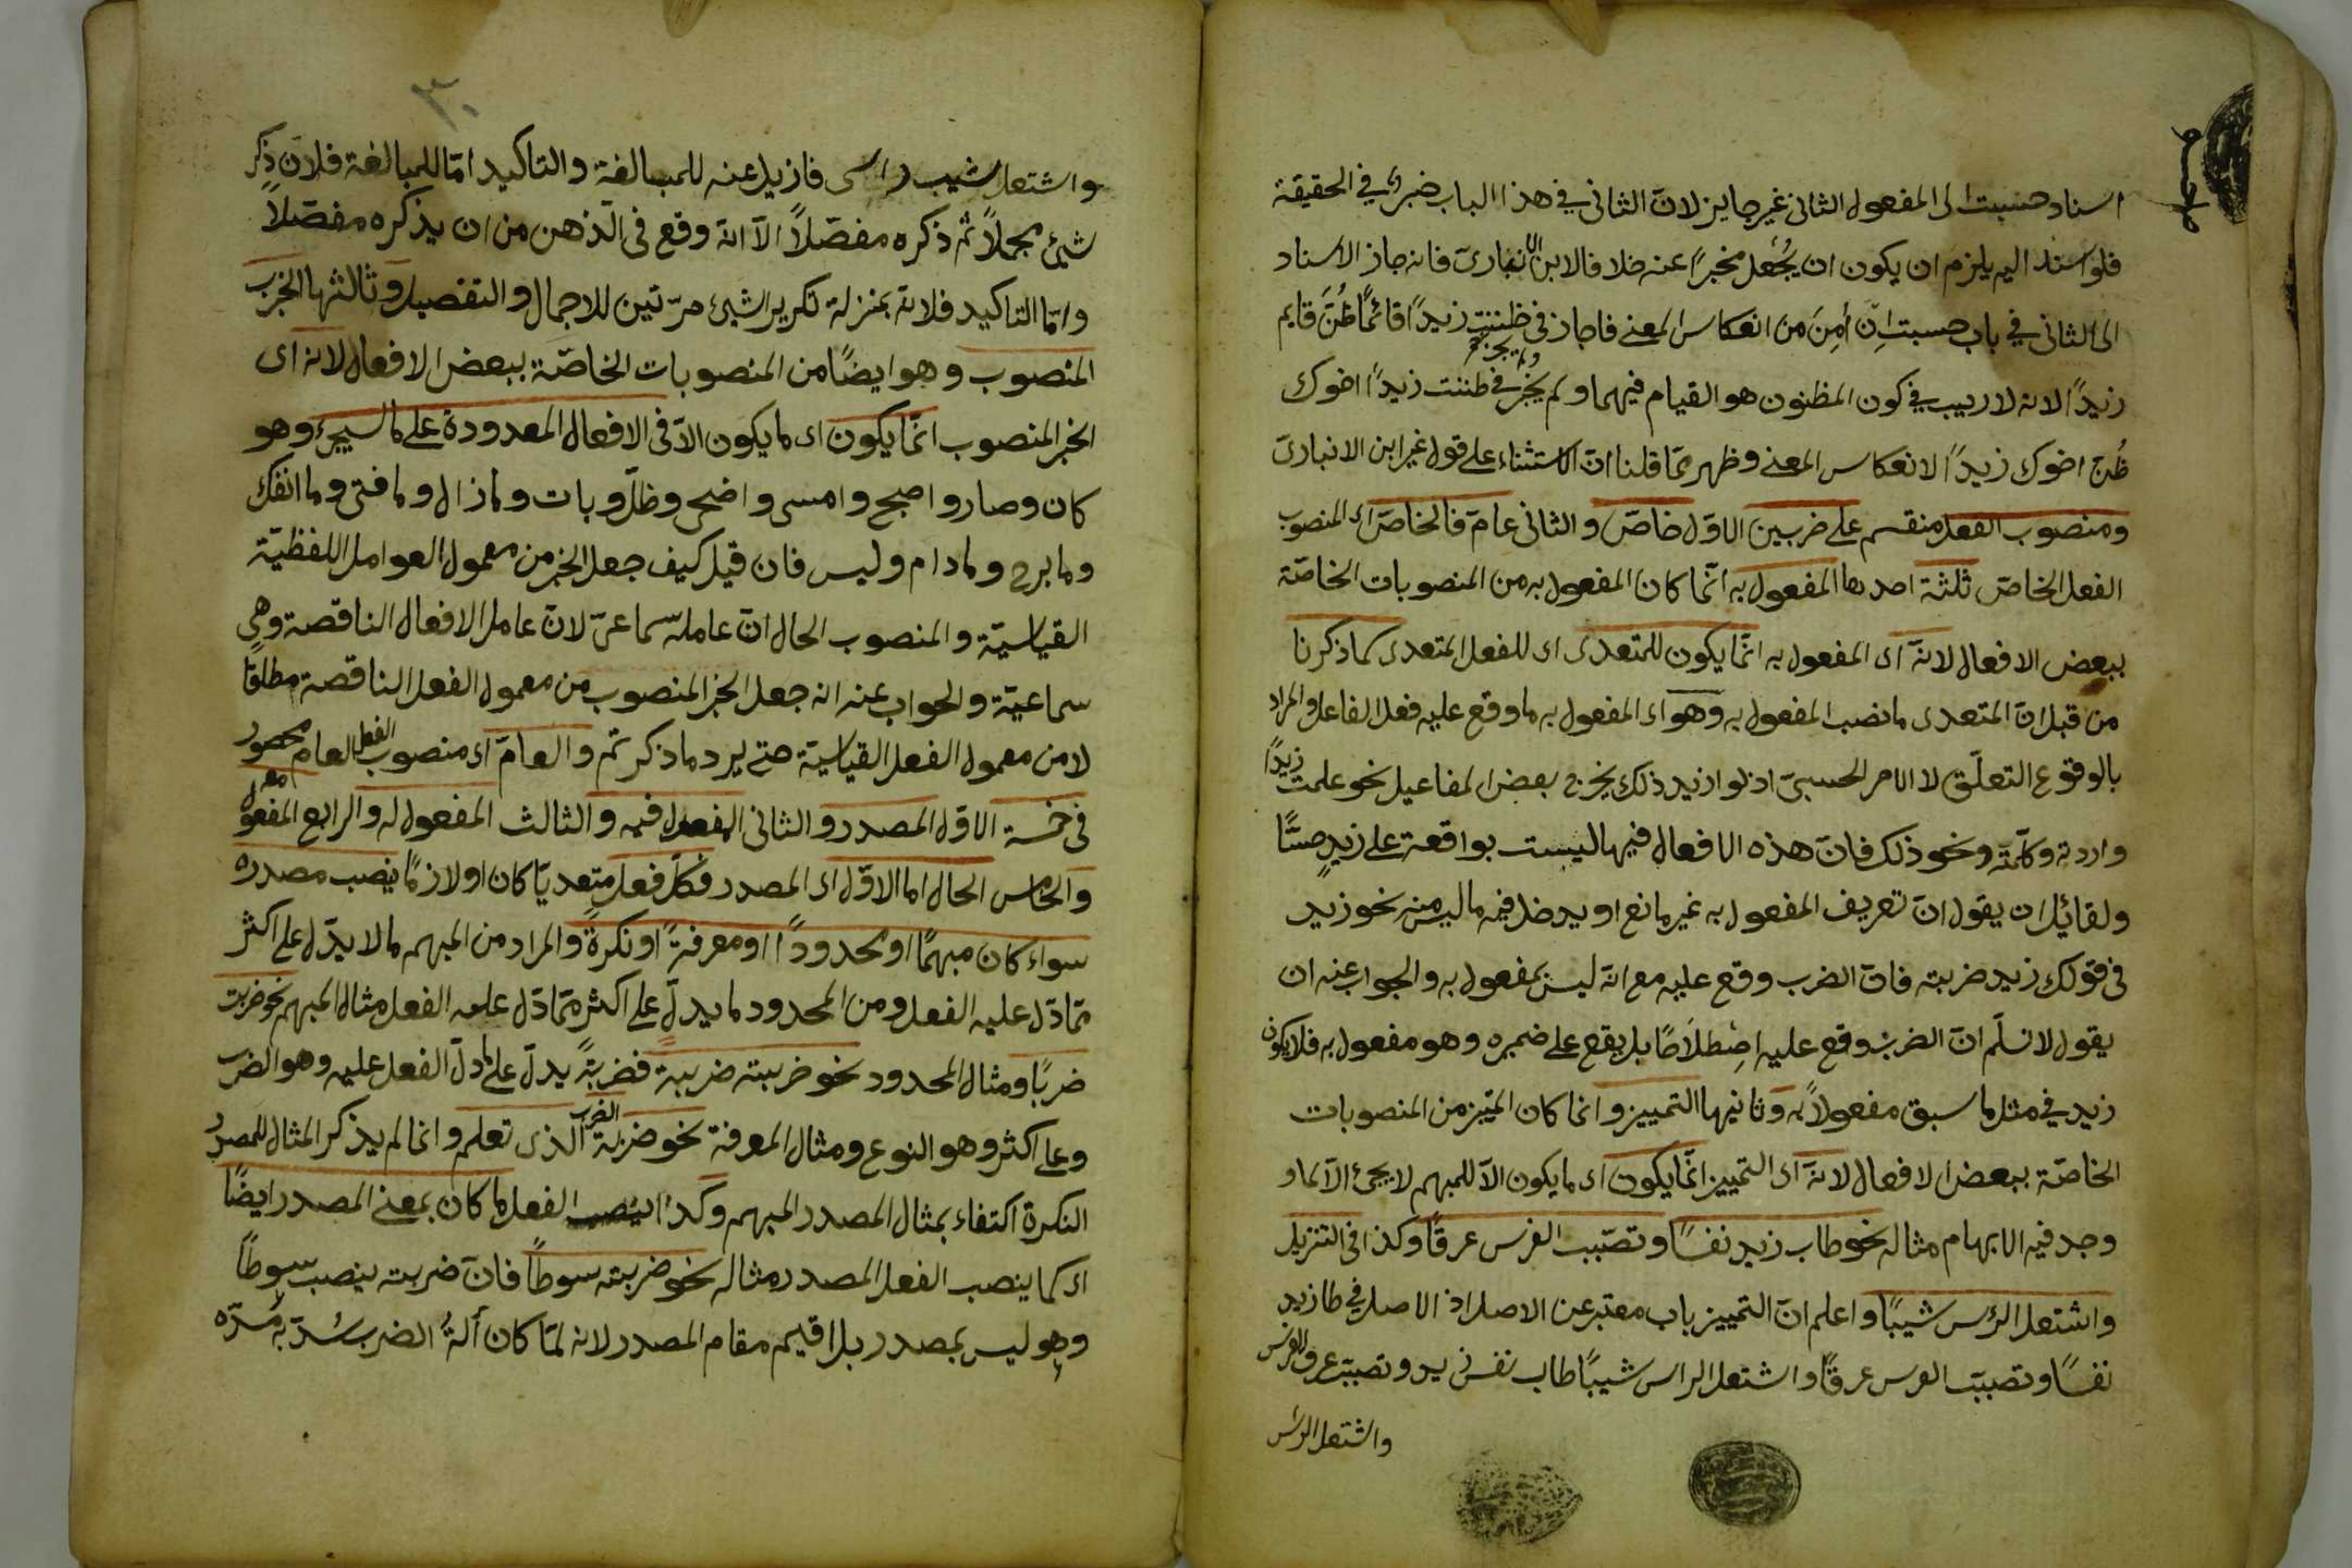 اسناد حسبت الى المفعول الثانى غير جايز لانّ الثانى فى هذا الباب خبر فى الحقيقة
فلو اسند اليه يلزم ان يكون ان يُجْعل مخبرًا عنه خلافا لابن الانبارىّ فانه جاز الاسناد
الى الثانى فى باب حسبت اِن اُمِنَ من انعكاس المعنى فاجاز فى ظننت زيدًا قائمًا ظُنَّ قايم
زيدًا لانه لا ريب فى كون المظنون هو القيام فيهما ولم يُجْز فى ظننت زيدًا اخوك
ظُنّ اخوك زيدًا لانعكاس المعنى وظهر ممّا قلنا انّ الاستثناء على قول غير ابن الانبارىّ
ومنصوب الفعل منقسم على ضربين الاوّل خاصّ والثانى عامّ فالخاصّ اى المنصوب
الفعل الخاصّ ثلثة احدها المفعول به انّما كان المفعول به من المنصوبات الخاصّة
ببعض الافعال لانّه اى المفعول به انّما يكون للمتعدى اى للفعل المتعدى كما ذكرنا
من قبل انّ المتعدى ما نصب المفعول به وهو اى المفعول به ما وقع عليه فعل الفاعل والمراد
بالوقوع التعلّق لا الامر الحسىّ اذ لو اريد ذلك يخرج بعض المفاعيل نحو علمت زيدًا
واردته وكلّمته ونحو ذلك فانّ هذه الافعال فيها ليست بواقعة على زيدٍ حسًّا
ولقائل ان يقول انّ تعريف المفعول به غير مانع اذ يدخل فيه ما ليس منه نحو زيد
فى قولك زيد ضربته فانّ الضرب وقع عليه مع انّه ليس بمفعول به والجواب عنه ان
يقول لا نسلّم انّ الضرب وقع عليه اصْطلاحًا بل يقع على ضميره وهو مفعول به فلا يكون
زيد فى مثل ما سبق مفعولاً به وثانيها التمييز وانما كان المميّز من المنصوبات
الخاصّة ببعض الافعال لانّه اى التمييز انّما يكون اى ما يكون الّا للمبهم لا يجئ الّا لما و
وجد فيه الابهام مثاله نحو طاب زيد نفسًا وتصبّب الفرس عرقًا وكذا فى التنزيل
واشتعل الرّس شيبًا واعلم انّ التمييز باب معتبر عن الاصل اذ الاصل فى طاب زيد
نفسًا وتصبّب الفرس عرقًا واشتعل الراس شيبًا طاب نفس زيد وتصبّب عرق الفرس
واشتعل الرّس
٣٠
واشتعل شيب راسى فازيل عنه للمبالغة والتاكيد امّا للمبالغة فلانّ ذكر
شئ مجملاً ثم ذكره مفصّلاً الّا انّه وقع فى الذهن من ان يذكره مفصّلاً
وامّا التاكيد فلانّه بمنزلة تكرير الشئ مرّتين للاجمال والتفصيل وثالثها الخبر
المنصوب وهو ايضًا من المنصوبات الخاصّة ببعض الافعال لانه اى
الخبر المنصوب انّما يكون اى ما يكون الّا فى الافعال المعدودة على ما سيجئ وهو
كان وصار واصبح وامسى واضحى وظلّ وبات وما زال وما فتى وما انفك
وما برح وما دام وليس فان قيل كيف جعل الخبر من معمول العوامل اللفظيّة
القياسيّة والمنصوب الحال انّ عامله سماعىّ لانّ عامل الافعال الناقصة وهى
سماعيّة والجواب عنه انه جعل الخبر المنصوب من معمول الفعل الناقصة مطلقًا
لا من معمول الفعل القياسيّة حتى يرد ما ذكر ثمّ والعامّ اى منصوب الفعل العام محصور
فى خمسة الاوّل المصدر والثانى المفعول فيه والثالث المفعول له والرابع المفعول معه
والخامس الحال اما الاوّل اى المصدر فكلّ فعل متعديّا كان او لازمًا ينصب مصدره
سواء كان مبهمًا او محدودًا او معرفةً او نكرةً والمراد من المبهم ما لا يدّل على اكثر
ممّا دّل عليه الفعل ومن المحدود ما يدلّ على اكثر ممّا دّل عليه الفعل مثال المبهم نحو ضربت
ضربًا ومثال المحدود نحو ضربته ضربة فضربةً يدلّ على ما دلّ الفعل عليه وهو الضرب
وعلى اكثر وهو النوع ومثال المعرفة نحو ضربته الضرب الذى تعلم وانما لم يذكر المثال للمصدر
النكرة اكتفاء بمثال المصدر المبهم وكذا ينصب الفعل ما كان بمعنى المصدر ايضًا
اى كما ينصب الفعل المصدر مثاله نحو ضربته سوطًا فانّ ضربته ينصب سوطًا
وهو ليس بمصدر بل اقيم مقام المصدر لانه لمّا كان آلةُ الضرب